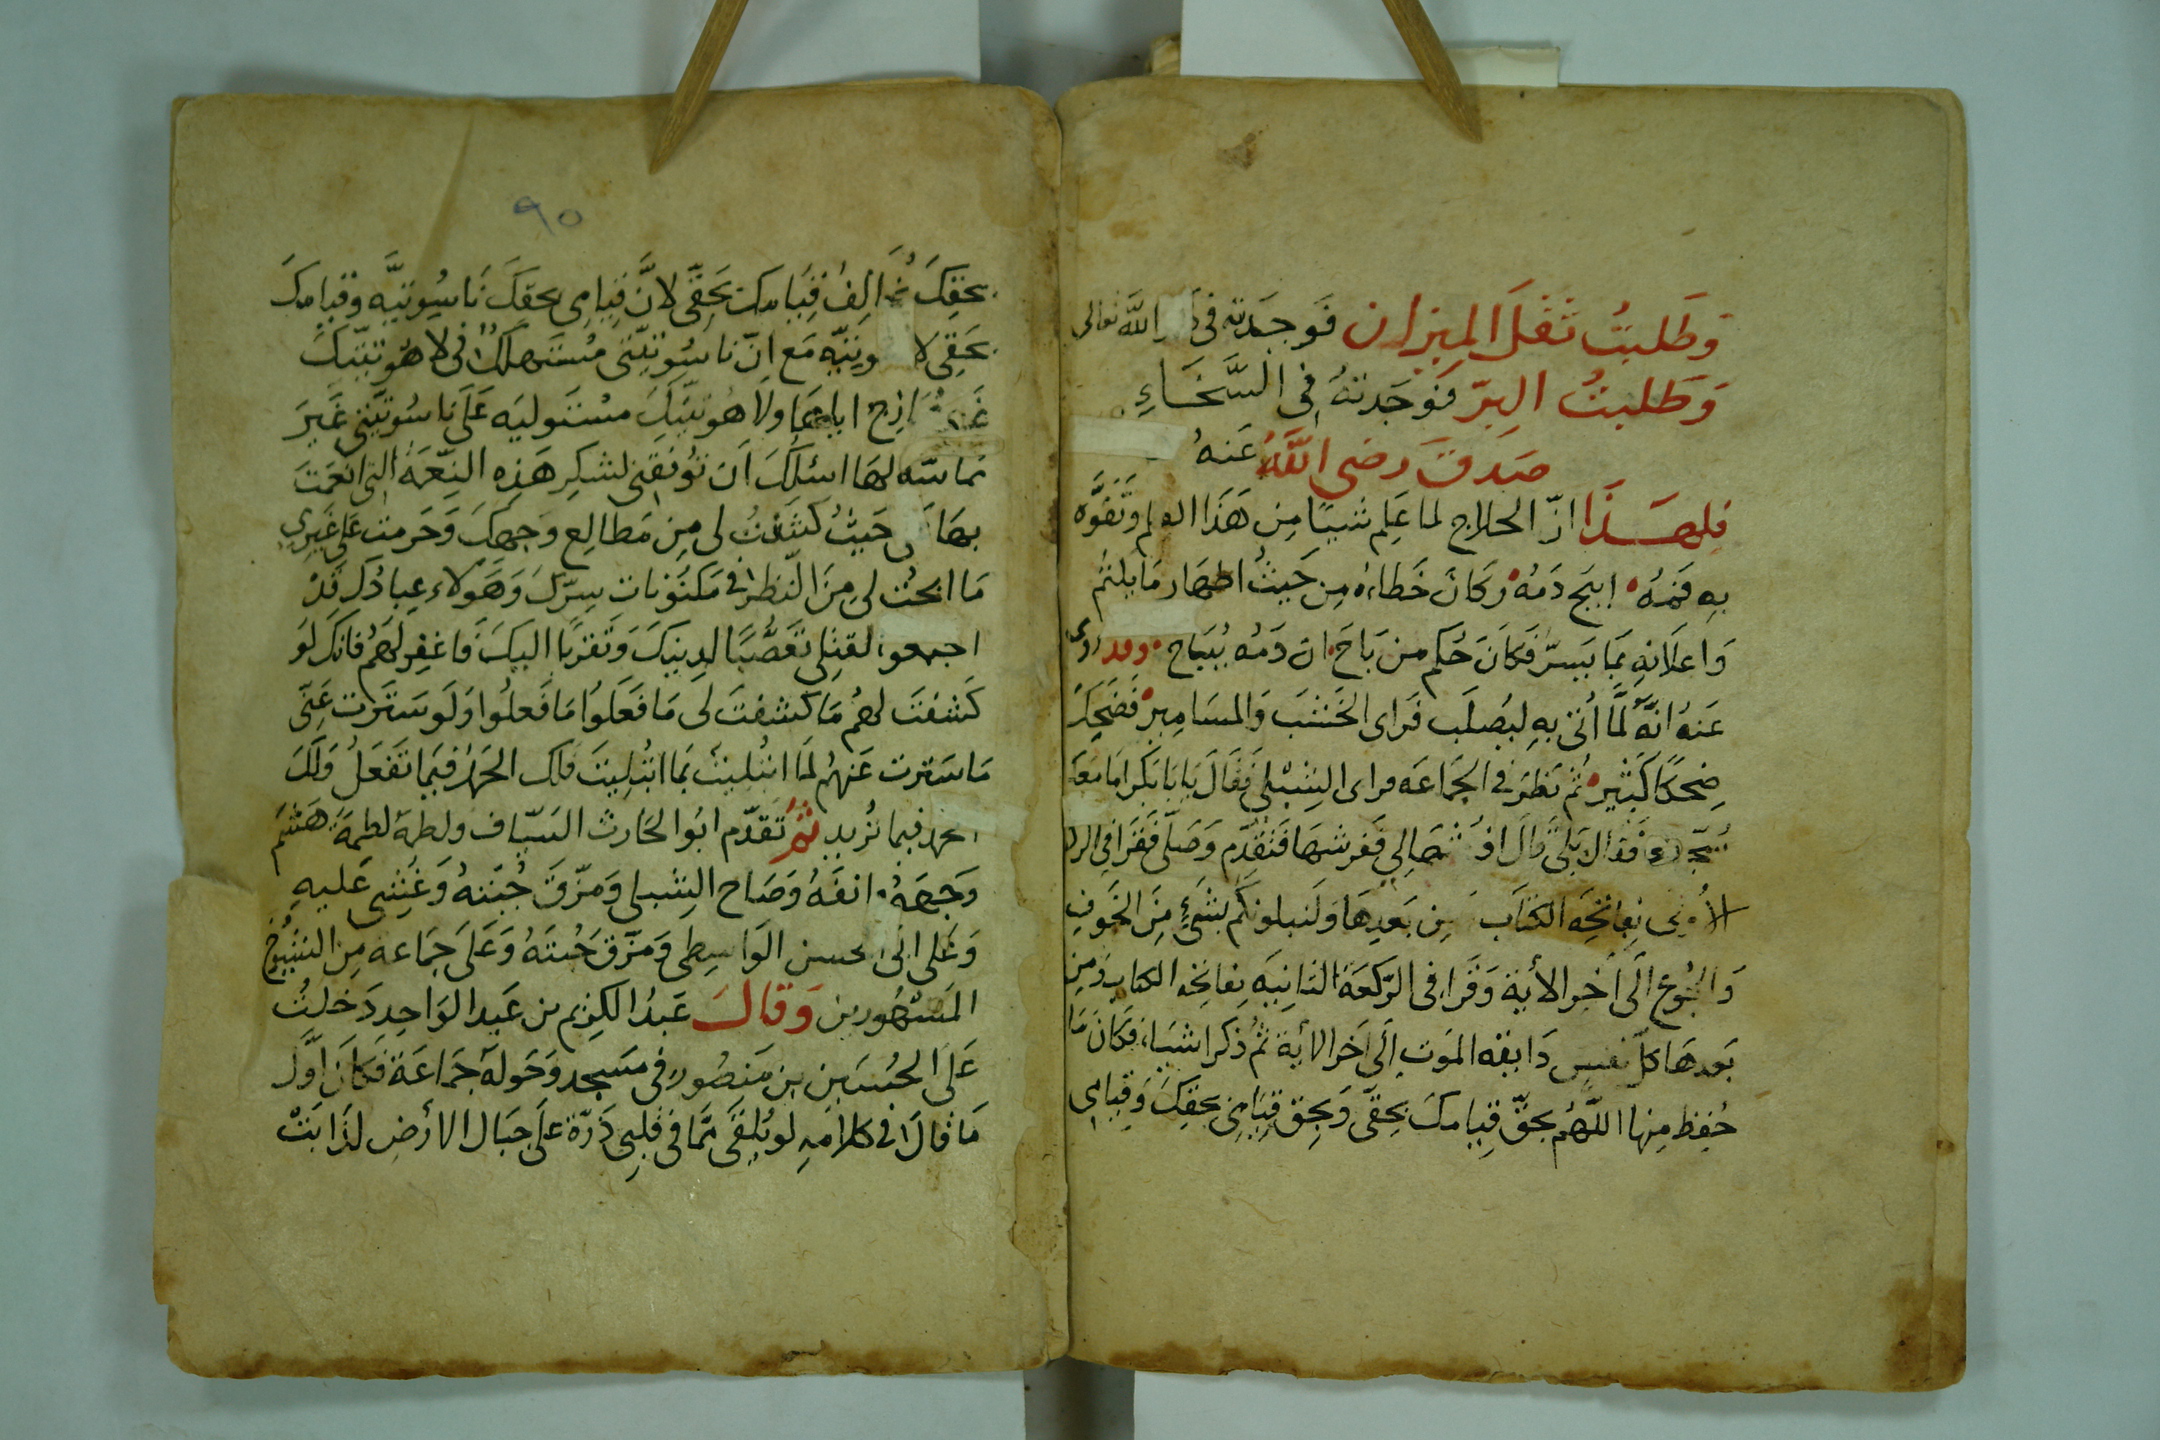 وَطَلبتُ ثقلَ الميزان فَوجَدته فى الله تعالى
وَطَلبتُ البِرّ فَوَجَدتهُ فى السَّخَاءِ
صَدقَ رضى اللَّهُ عَنهُ
فلهـــذَا انّ الحلاج لما عَلِم شيئا مِن هَذا العلم وَتَفَوَّه
بهِ فَمُه ابيَح دَمُه وَكانَ خَطاءه مِن حَيثُ اظهار مَا يلثم
وَاعلَانهِ بمَا يَسرّ فكانَ حُكم من بَاحَ ان دَمُه يُبَاح وقد روى
عَنهُ انَّه لَّما اُتى بهِ ليصلَب فَراى الخَشبَ وَالمسَامِير فَضَحِكَ
ضِحكًا كَثير ثُم نَظرَ فى الجَماعَه فراى الشِبْلى فَقَالَ يَا بَابَكر امَا مَعكَ
سُجّاده فَقال بَلَى قالَ افرشهَا لِى فَفرشهَا فتقدّم وَصَلّى فَقَرا فى الركعه
الأولى بِفاتحَِه الكتَاب مِن بَعدِهَا وَلنبلونكم بشَىءٍ مِنَ الخَوفِ
وَالجُوع الَى اخِر الأية وَقَرا فى الرّكعَة الثانِيَه بفاتحَه الكتاب وَمِن
بَعدهَا كلّ نفسٍ ذَايقه المَوت الَى اخَر الاية ثمُ ذَكرَ اشيَاء فَكانَ مَا
حُفِظ مِنها اللَّهُم بحقّ قِيامكَ بحِقّى وَبحِق قِيَامِى بحقِكَ وَقِيامِى
٩٥
بحَقِكَ يخَالِفُ قِيَامك بحَقِّى لانَّ قِيامِى بحقكَ نَاسُوتيَّه وَقيامكَ
بحَقِى لاهوتيَّه مَع انّ ناسُوتيّتى مُستَهلكَةٌ فى لاهُوتيّتكَ
غَير مَازِج اياهَا ولاهُوتيّتكَ مسْتَوليَه عَلَى ناسُوتيّتى غَيرَ
مماسّه لهَا اسئلكَ اَن تُوفقنى لشكِر هَذِه النِّعمَة التى انعَمتَ
بهَا حَيثُ كشَفتُ لى مِن مَطالِع وَجهِكَ وَحَرمت عَلى غَيرى
مَا ابحُت لى مِنَ النّظر فى مَكنُونات سِرّكَ وَهَولاء عِبادُك قَدْ
اجمعوا لقتلِى تَعَصُّبًا لدِينِكَ وَتَقربًا اليكَ فَاغفِر لهُم فانكَ لَو
كَشفتَ لهُم مَا كشفتَ لى مَا فَعَلوُا مَا فَعلُوا وَلَو سَترَت عَنِّى
مَا سَترت عَنهُم لمَا ابتُليتُ بمَا ابتُليتَ فلك الحَمد فيمَا تَفعَلُ وَلكَ
الحمد فيما تُريد ثُمّ تَقدّم ابَو الحَارث السَيّاف ولطمهُ لطمَةً هَشَم
وَجهَهُ وانفَهُ وَصَاح الشِبلى وَمَزّقَ جُبّتهُ وَغُشِى عَليهِ
وَعَلى ابَى الحسن الوَاسِطِى وَمَزّق جُبتهُ وَعَلَى جَمَاعه مِن الشيُوخ
المَشهُورين وَقالَ عَبدُ الكرِيم بن عَبد الوَاحِد دَخلتُ
عَلَى الحُسَين بن مَنصُور فى مَسجِد وَحَولهُ جَماعَة فكانَ اَوَّل
مَا قالَ فى كلامهِ لو يُلقَى ممَّا فى قلبى ذَرّة عَلَى جبَال الأرْضِ لذَابَتْ